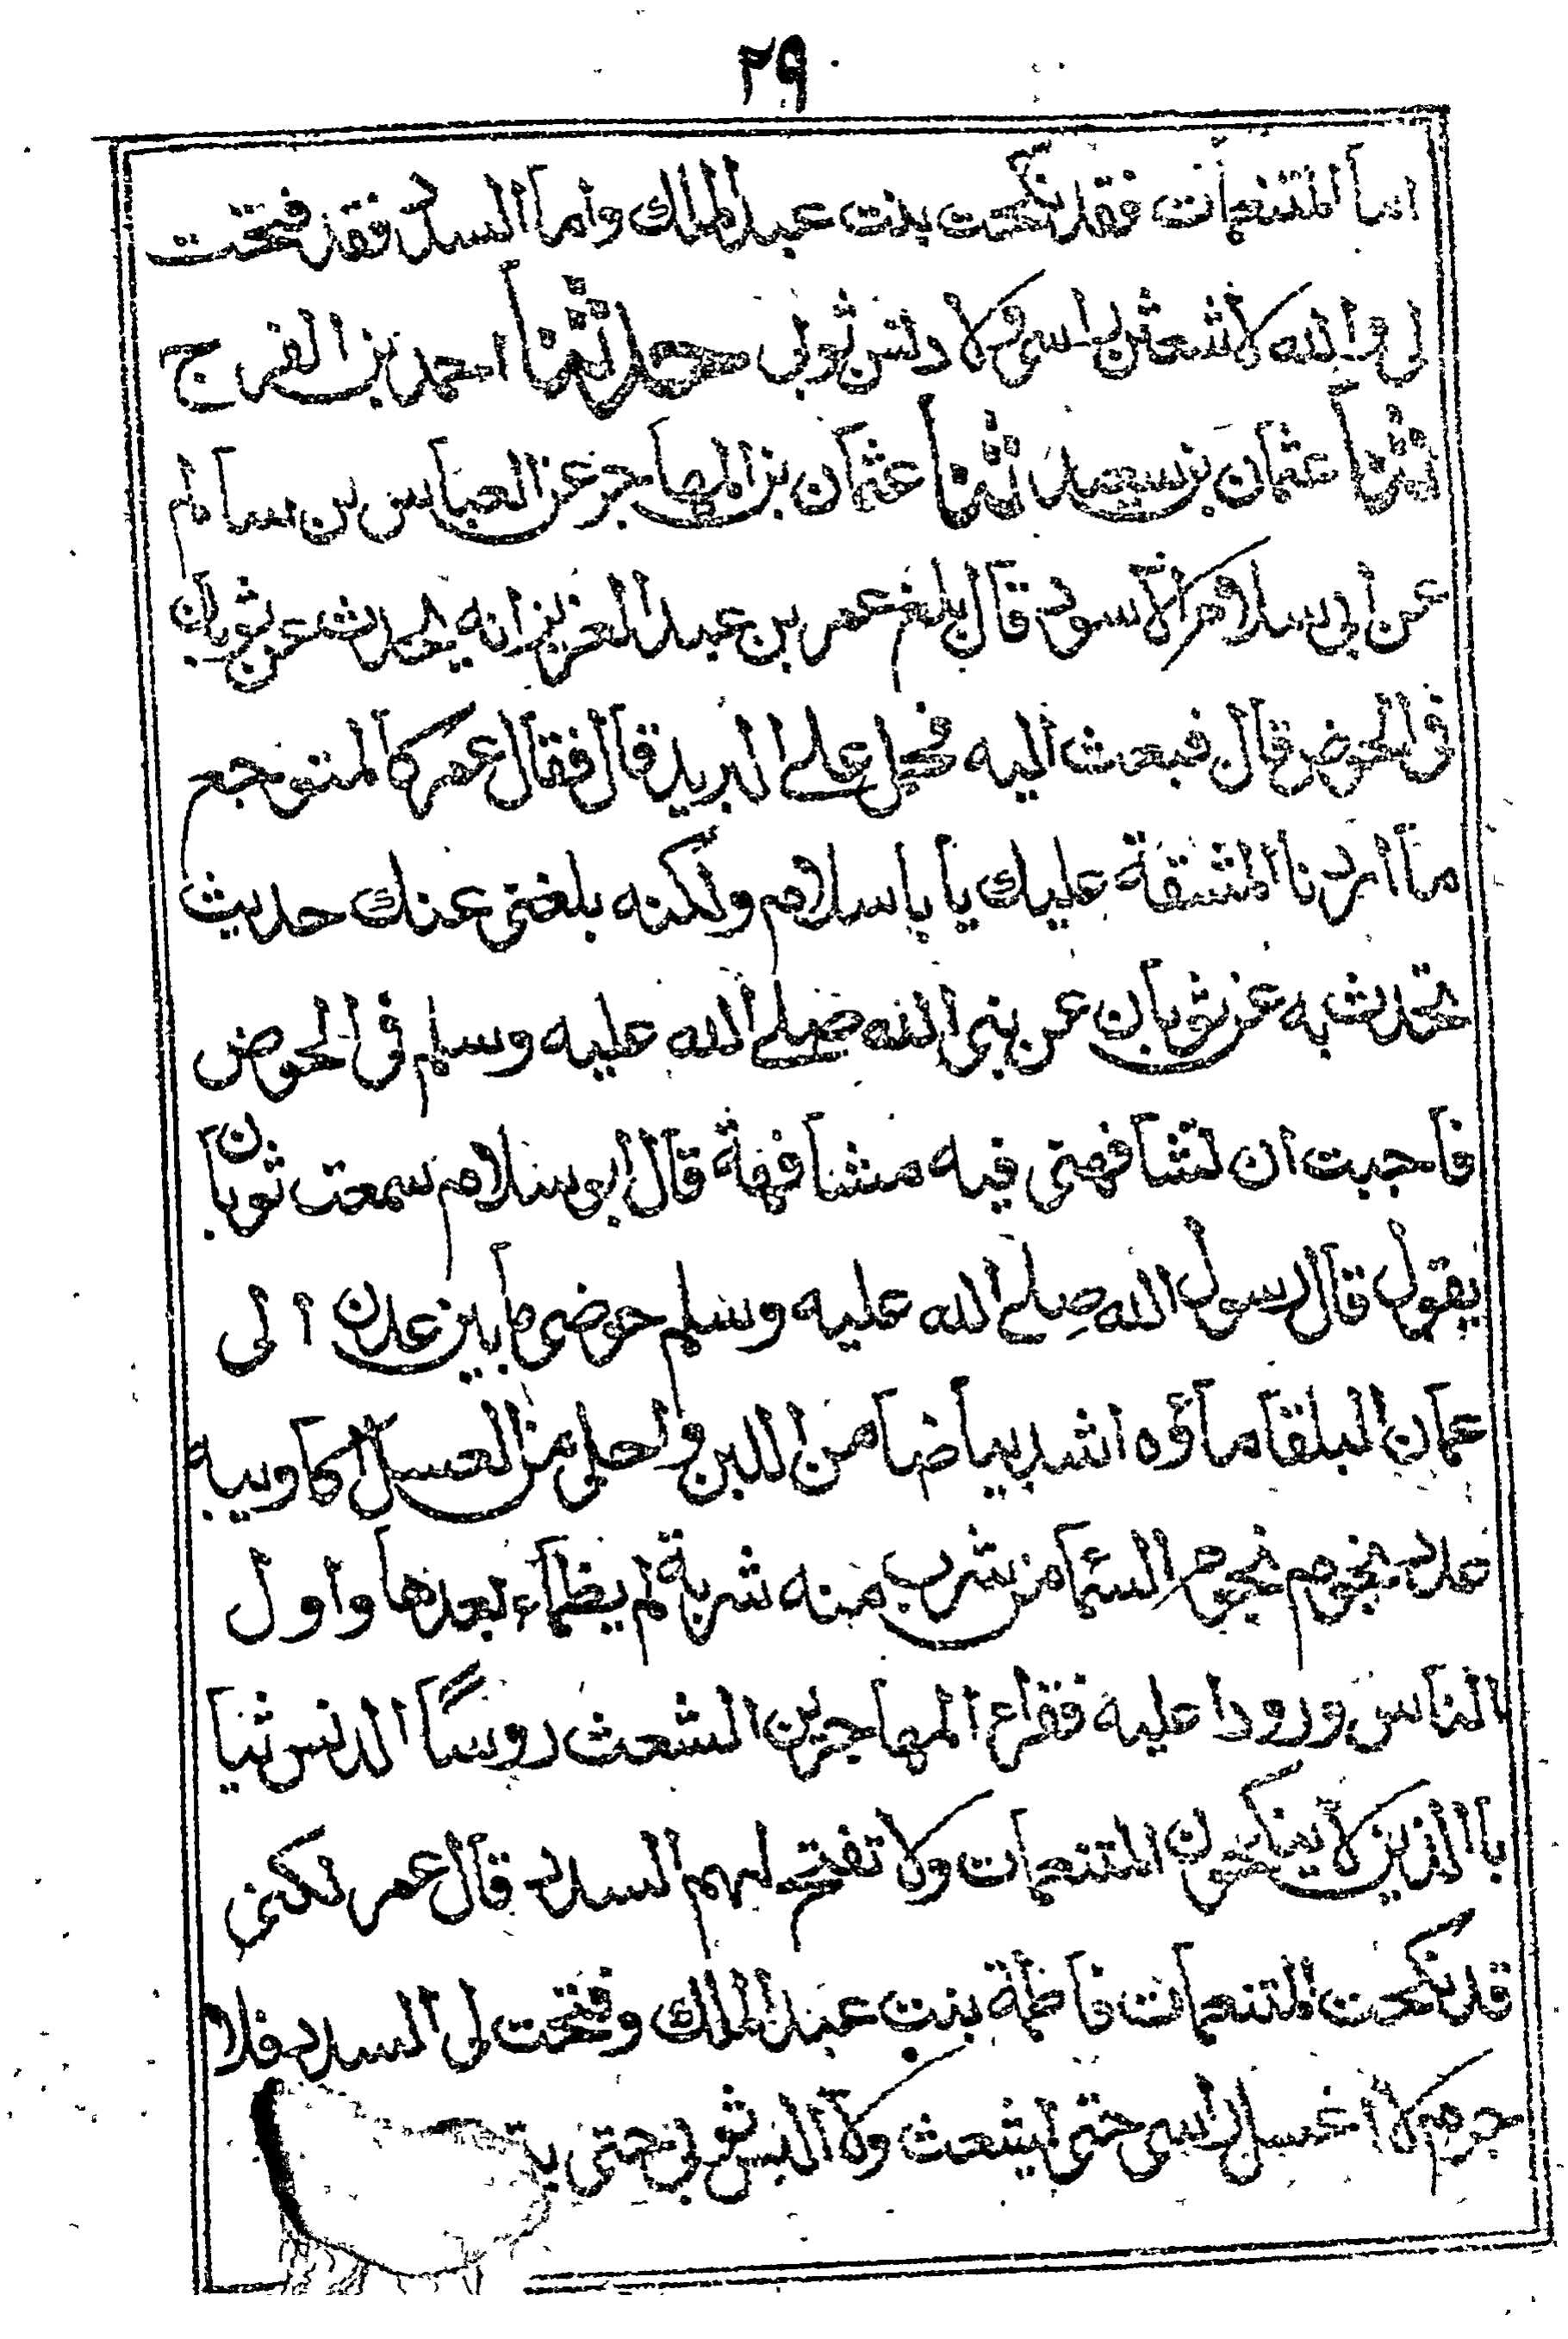 ٢٩
اما المتنعمات فقد نكحت بنت عبد الملك واما السدد فقد فتحت
لى والله لاشعثن راسى ولادنس ثوبى حدثنا احمد بن الفرج
ثنا عثمان بن سعيد ثنا عثمان بن المهاجر عن العباس بن سالم
عن ابى سلام الاسود قال بلغ عمر بن عبد العزيز انه يحدث عن ثوبان
فى الحوض قال فبعث اليه فحمل على البريد قال فقال عمر كالمتوجع
ما اردنا المشقة عليك يا با سلام ولكنه بلغنى عنك حديث
تحدث به عن ثوبان عن نبى الله صلى الله عليه وسلم فى الحوض
فاحببت ان تشافهنى فيه مشافهة قال ابو سلام سمعت ثوبان
يقول قال رسول الله صلى الله عليه وسلم حوضى ما بين عدن الى
عمان البلقا ماؤه اشد بياضا من اللبن واحلى من العسل اكاويبه
عدد نجوم نجوم السما من شرب منه شربة لم يظماء بعدها واول
الناس ورودا عليه فقراء المهاجرين الشعث روسا الدنس ثيا
با الذين لا ينكحون المتنعمات ولا تفتح لهم السدد قال عمر لكنى
قد نكحت المتنعمات فاطمة بنت عبد الملك وفتحت لى السدد فلا
جرم لا اغسل راسى حتى يشعث ولا البس ثوبى حتى